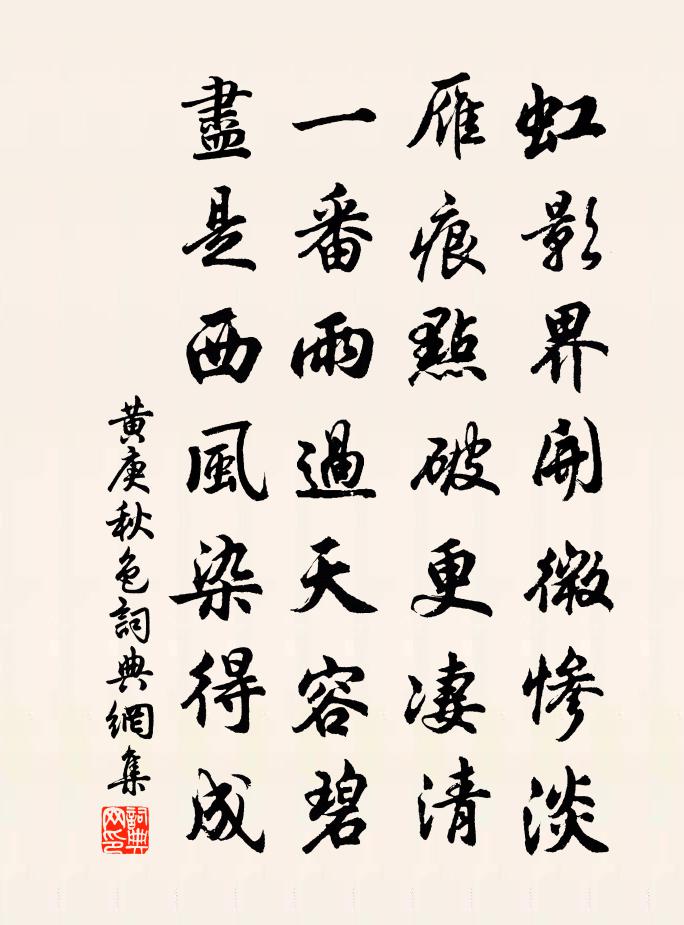 虹影界開微慘淡
雁痕點破更淒清
一番雨過天容碧
盡是西風染得成
黃庚秋色詞典網集
詞典
网印